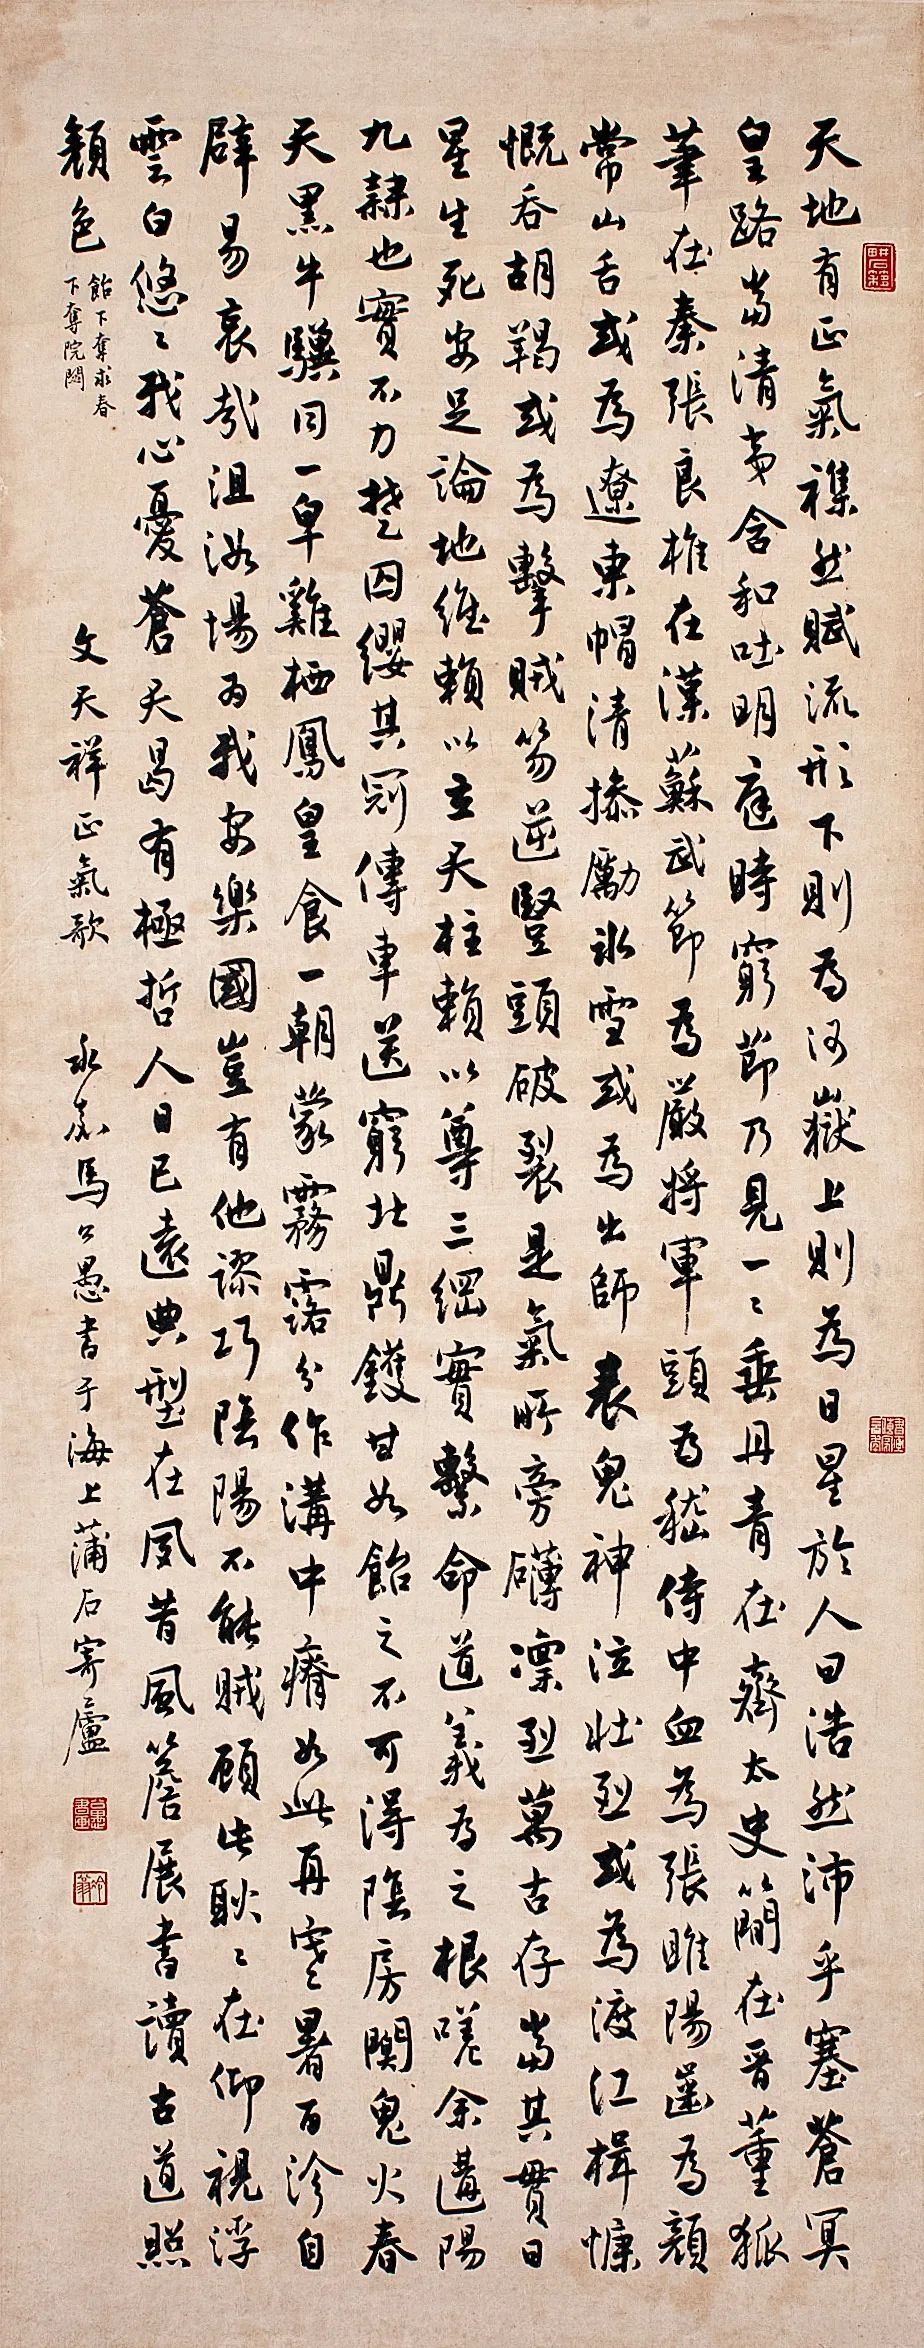 天地有正氣襍然賦流形下則為河嶽上則為日星於人曰浩然沛乎塞蒼冥
皇路當清夷含和吐明庭時窮節乃見一ミ垂丹青在齊太史簡在晉董狐
筆在秦張良椎在漢蘇武節為嚴將軍頭為嵇侍中血為張睢陽齒為顏
常山舌或為遼東帽清操厲冰雪或為出師表鬼神泣壯烈或為渡江楫慷
慨吞胡羯或為擊賊笏逆豎頭破裂是氣所旁礴凜烈萬古存當其貫日
星生死安足論地維賴以立天柱賴以尊三綱實繫命道義為之根嗟余遘陽
九隸也實不力楚囚纓其冠傳車送窮北鼎鑊甘如飴之不可得陰房闃鬼火春
天黑牛驥同一皁雞栖鳳皇食一朝蒙霧露分作溝中瘠如此再寒暑百沴自
辟易哀哉沮洳場為我安樂國豈有他謬巧陰陽不能賊顧此耿ミ在仰視浮
雲白悠ミ我心憂蒼天曷有極哲人日已遠典型在夙昔風簷展書讀古道照
顏色
飴下奪求春
下奪院閟
文天祥正氣歌 永嘉馬公愚書于海上蒲石寄廬